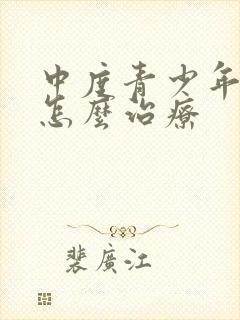 中度青少年
怎麼治療
裴廣江